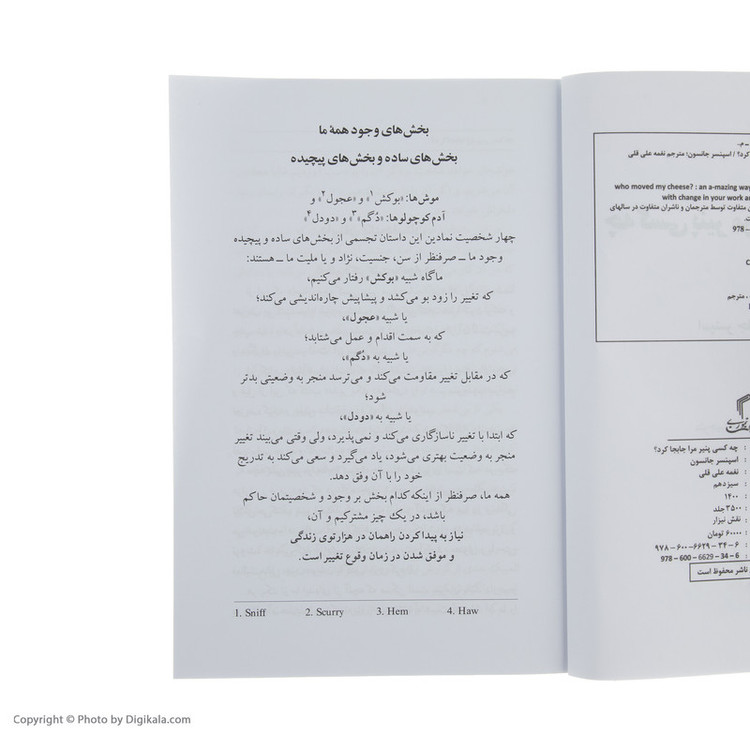 بخش‌های وجود همهٔ ما
بخش‌های ساده و بخش‌های پیچیده
موش‌ها: «بوکش۱» و «عجول۲» و
آدم‌کوچولوها: «دُگم۳» و «دودل۴»
چهار شخصیت نمادین این داستان تجسمی از بخش‌های ساده و پیچیده
وجود ما ــ صرفنظر از سن، جنسیت، نژاد و یا ملیت ما ــ هستند:
ما گاه شبیه «بوکش» رفتار می‌کنیم،
که تغییر را زود بو می‌کشد و پیشاپیش چاره‌اندیشی می‌کند؛
یا شبیه «عجول»،
که به سمت اقدام و عمل می‌شتابد؛
یا شبیه به «دُگم»،
که در مقابل تغییر مقاومت می‌کند و می‌ترسد منجر به وضعیتی بدتر
شود؛
یا شبیه به «دودل»،
که ابتدا با تغییر ناسازگاری می‌کند و نمی‌پذیرد، ولی وقتی می‌بیند تغییر
منجر به وضعیت بهتری می‌شود، یاد می‌گیرد و سعی می‌کند به تدریج
خود را با آن وفق دهد.
همه ما، صرفنظر از اینکه کدام بخش بر وجود و شخصیتمان حاکم
باشد، در یک چیز مشترکیم و آن،
نیاز به پیدا کردن راهمان در هزارتوی زندگی
و موفق شدن در زمان وقوع تغییر است.
1. Sniff 2. Scurry 3. Hem 4. Haw
کرد؟ / اسپنسر جانسون؛ مترجم نغمه علی قلی
who moved my cheese? : an a-mazing way
with change in your work a
متفاوت توسط مترجمان و ناشران متفاوت در سالهای
۹۷۸ –
، مترجم
: چه کسی پنیر مرا جابجا کرد؟
: اسپنسر جانسون
: نغمه علی قلی
: سیزدهم
: ۱۴۰۰
: ۳۵۰۰ جلد
: نقش نیزار
: ۶۰۰۰۰ تومان
: ۹۷۸ – ۶۰۰ – ۶۶۲۹ – ۳۴ – ۶
: 978 – 600 – 6629 – 34 – 6
ناشر محفوظ است
Copyright © Photo by Digikala.com